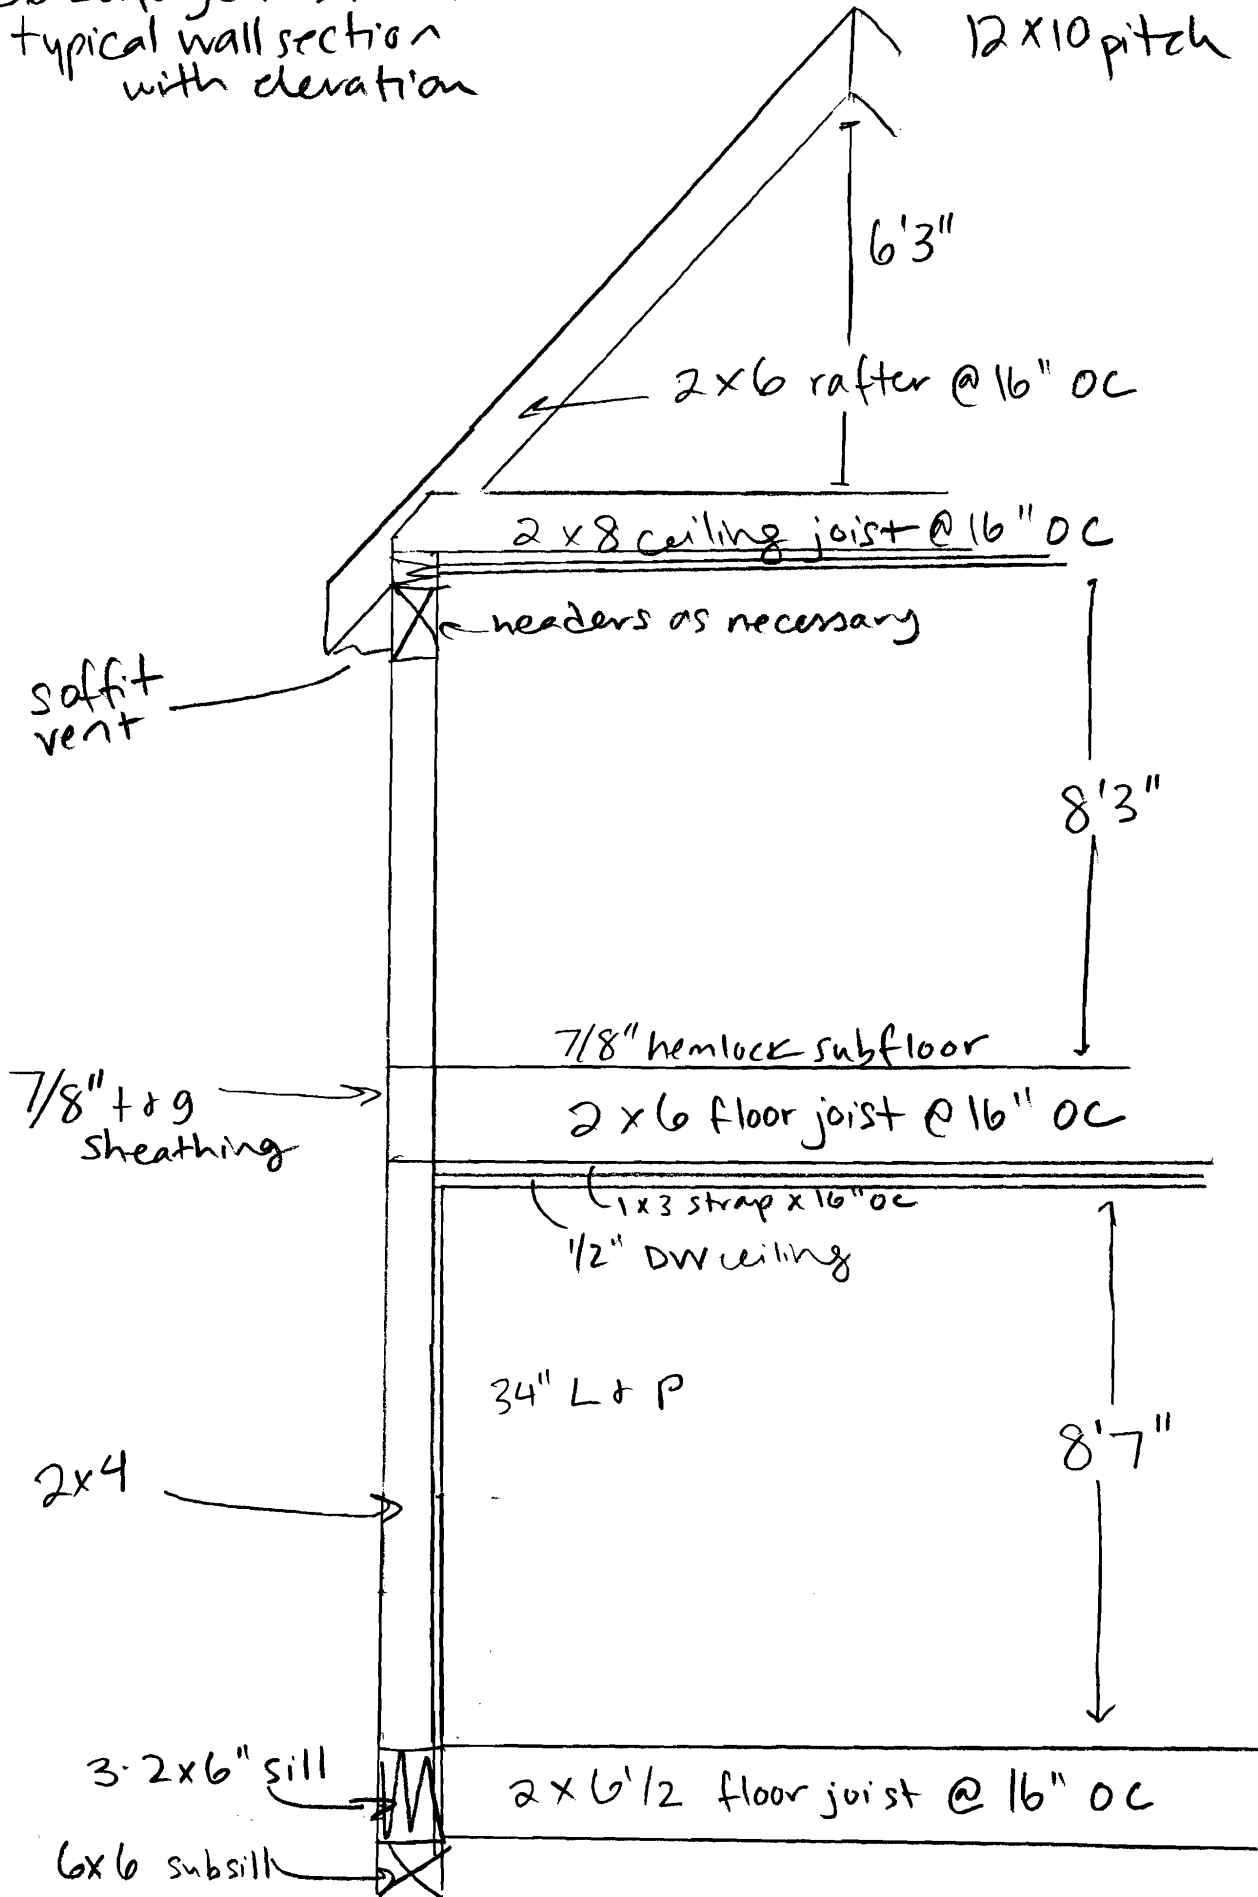 typical wall section
with elevation
12 x 10 pitch
6'3"
2 x 6 rafter @ 16" OC
2 x 8 ceiling joist @ 16" OC
headers as necessary
soffit
vent
8'3"
7/8" hemlock subfloor
7/8" t & g
sheathing
2 x 6 floor joist @ 16" OC
1 x 3 strap x 16" OC
1/2" DW ceiling
34" L & P
8'7"
2x4
3. 2x6" sill
2 x 6 1/2 floor joist @ 16" OC
6x6 subsill